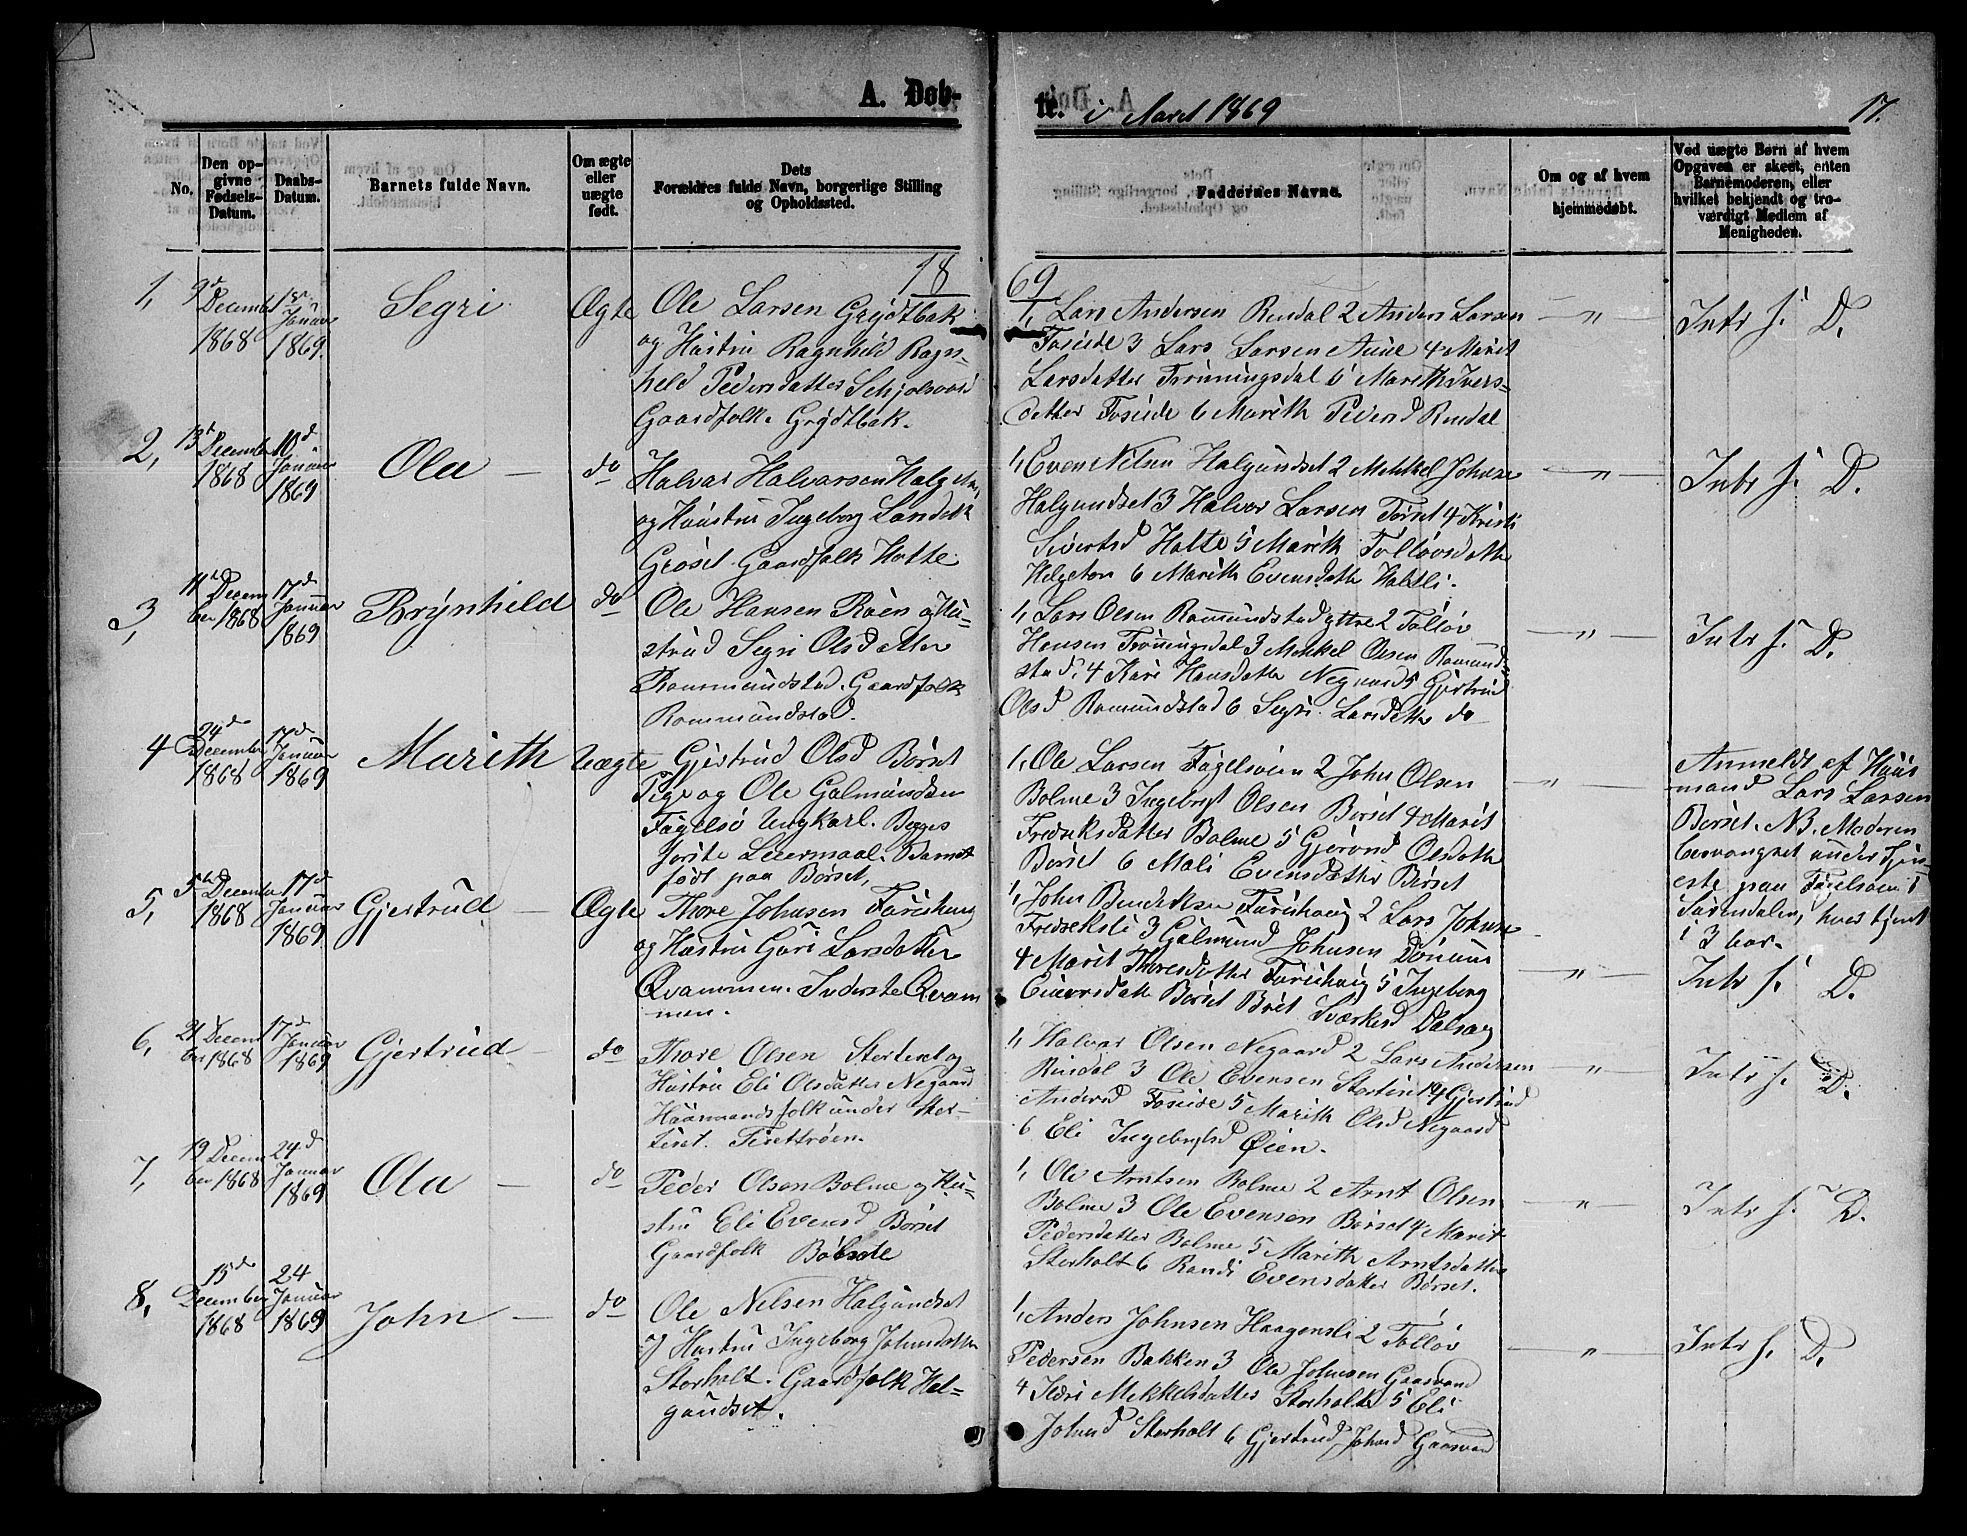 A. Døb-
te. i Aaret 1869
17.
No.
Den op-
givne
Fødsels-
Datum.
Daabs-
Datum.
Barnets fulde Navn.
Om ægte
eller
uægte
født.
Dets
Forældres fulde Navn, borgerlige Stilling
og Opholdssted.
Faddernes Navne.
Om og af hvem
hjemmedøbt.
Ved uægte Børn af hvem
Opgaven er skeet, enten
Barnemoderen, eller
hvilket bekjendt og tro-
værdigt Medlem af
Menigheden.
18
69
1,
9d
Decembr
1868
Januar
1869.
Segri
Ægte
Ole Larsen Grydtbak
og Hustru Ragnhild Ragn-
held Pedersdatter
Gaardfolk. Grydtbak.
1, Lars Andersen Rindal 2 Anders Larsen
Foseide 3 Lars Larsen Aune 4 Marit
Larsdatter Trønningsdal 5 Marith Ivers-
datter Foseide 6 Marith Pedersd Rindal
— " —
Intr s. D.
2,
13d
December
1868
10d
Januar
1869
Ola —
do
Halvar Halvarsen
og Hustru Ingeborg
Grøset Gaardfolk Holte
1, Even Nilsen Halgundset 2 Mekkel Johnsen
Halgundset 3 Halvor Larsen Tørset 4 Kristi
Sivertsd Holte 5 Marith Folløvsdatter
Helgeton 6 Marith Evensdatter Holtli.
— " —
Intr s. D.
3,
11d
Decem
ber 1868
17d
Januar
1869
Brynhild
do
Ole Hansen Røen og Hu-
strud Segri Olsdatter
Rommundstad. Gaardfolk
Rommundstad.
1, Lars Olsen Romundstad yttre 2 Folløv
Hansen Trønningsdal 3 Mekkel Olsen Romund-
stad, 4 Kari Hansdatter Negaard 5 Gjertrud
Olsd Romundstad 6 Segri Larsdatter do
— " —
Intr s. D.
4
24d
December
1868
17d
Januar
1869
Marith
Uægte
Gjertrud Olsd Børset
Pige og Ole Galmundsen
Fagelsø Ungkarl. Begges
første Leiermaal. Barnet
født paa Børset,
1, Ole Larsen Fagelsøien 2 John Olsen
Bolme 3 Ingebrigt Olsen Børset 4 Marit
Fredriksdatter Bolme 5 Gjørond Olsdatter
Børset 6 Mali Evensdatter Børset
— " —
Anmeldt af Huus
mand Lars Larsen
Børset. NB. Moderen
besvangret under Tjen-
este paa Fagelsøen i
Surendalen, hvor tjent
i 3 aar.
5,
5d December
1868
17d
Januar
1869
Gjertrud —
Ægte
Thore Johnsen Farishaug
og Hustru Guri Larsdatter
Qvammen. Inderste Qvam
men.
1, John Bendiksen Farishaug 2 Lars Johnsen
Fredseksli 3 Galmund Johnsen
4 Marit Thoresdatter Farishaug 5 Ingeborg
Einarsdatter Børset Brit Sværkesd Dalsag
— " —
Intr s. D.
6,
21 Decem
ber 1868
17d
Januar
1869
Gjertrud —
do
Thore Olsen Storteset og
Hustru Eli Olsdatter Negaard
Huusmandsfolk under Stor-
teset.
1, Halvar Olsen Negaard 2 Lars Andersen
Rindal 3 Ole Evensen 4 Gjertrud
Andersd Foseide 5 Marith Olsd Negaard
6 Eli Ingebrigtsd Øien.
— " —
Intr s. D.
7,
19 Decem
ber 1868
24d
Januar
1869
Ola —
do
Peder Olsen Bolme og Hu-
stru Eli Evensd Børset
Gaardfolk
1, Ole Arntsen Bolme 2 Arnt Olsen
Bolme 3 Ole Evensen Børset 4 Marit
Pedersdatter Bolme 5 Marith Arntsdatter
Storholt 6 Randi Evensdatter Børset.
— " —
Intr s. D.
8,
15d
December
1868
24
Januar
1869
John —
do
Ole Nilsen Halgundset
og Hustru Ingeborg Johnsdatter
Storholt. Gaardfolk Hal-
gundset.
1, Anders Johnsen Haagensli 2 Folløv
Pedersen Bakken 3 Ole Johnsen Gaasvand
4 Mekkelsdatter Storholt 5 Eli
Johnsd Storholt 6 Gjertrud Johnsd Gaasvand
— " —
Intr s. D.